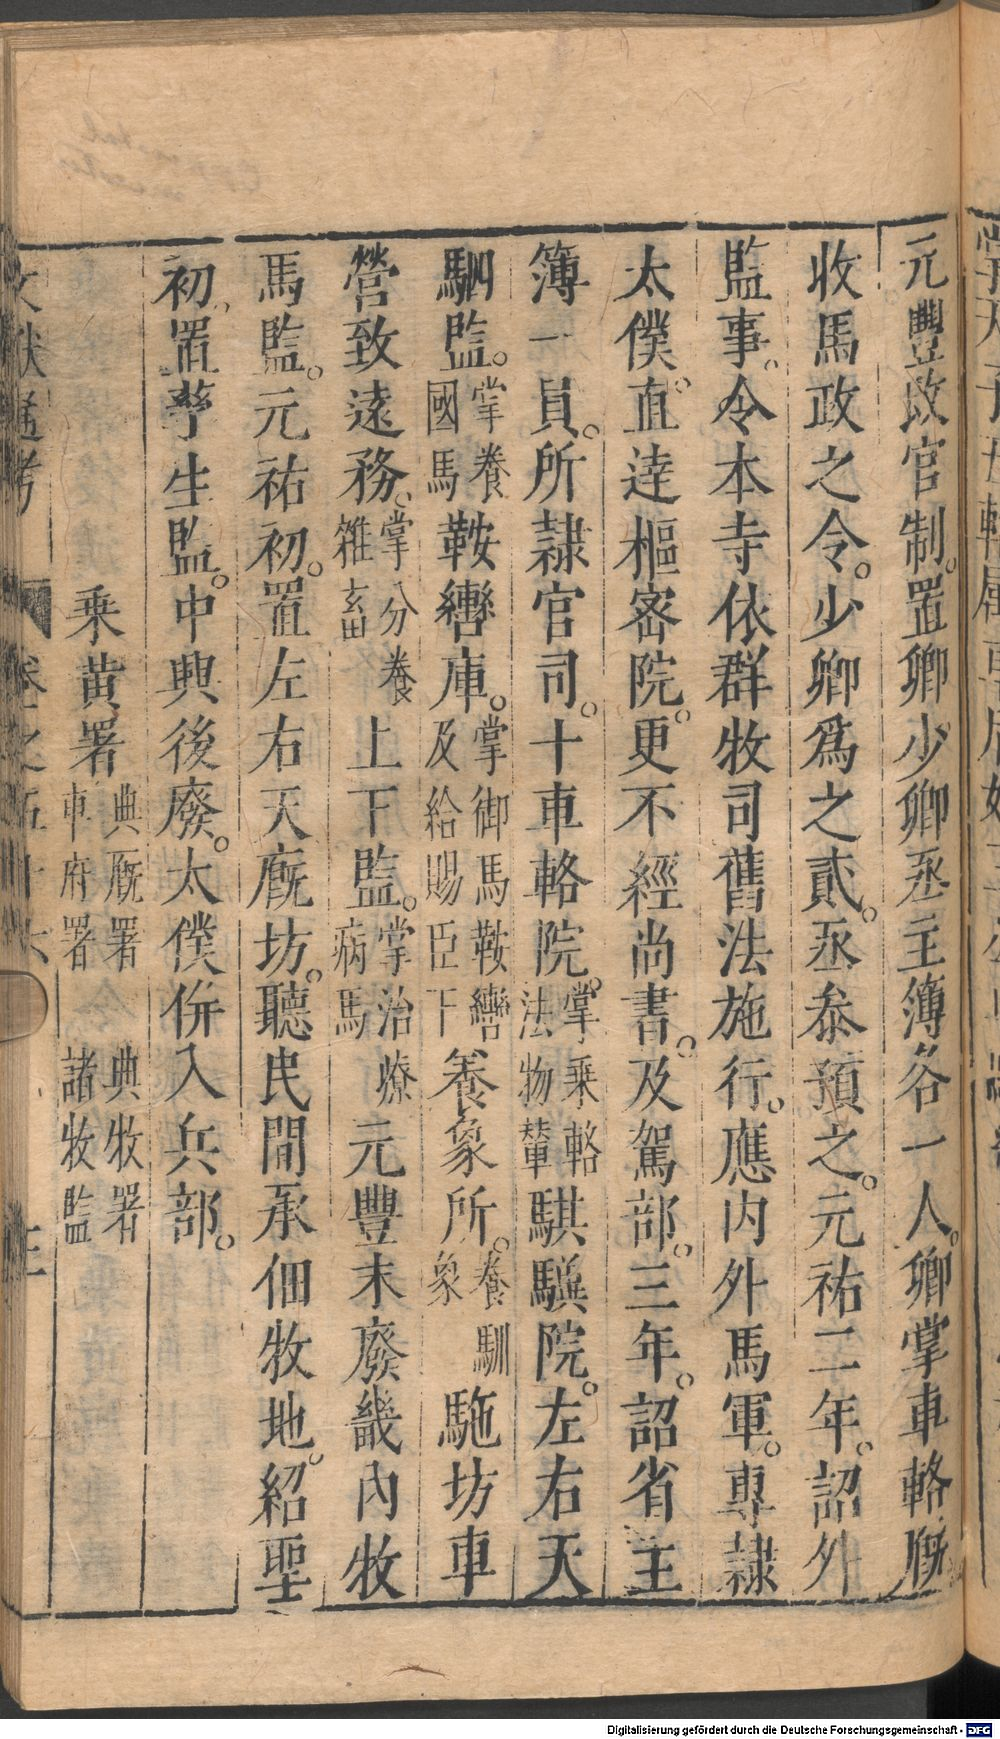 元豐政官制。置卿少卿丞主簿各一人。卿掌車輅厩
收馬政之令。少卿爲之貳。丞叅預之。元祐二年。詔外
監事。令本寺依群牧司舊法施行。應内外馬軍。專隷
太僕。直達樞密院。更不經尚書。及駕部。三年。詔省主
簿一員。所隷官司。十車輅院。掌乗輅法物輦騏驥院。左右天
駟監。掌養國馬鞍轡庫。掌御馬鞍轡及給賜臣下養象所。養馴象駞坊車
營致遠務。掌分養雑畜上下監。掌治療病馬元豐末廢畿内牧
馬監。元祐初。置左右天厩坊。聽民間承佃牧地。紹聖
初。置孳生監。中興後廢。太僕併入兵部。
乘黄署 典厩署車府署 典牧署諸牧監
文獻通考 卷之五十六
Digitalisierung gefördert durch die Deutsche Forschungsgemeinschaft - DFG